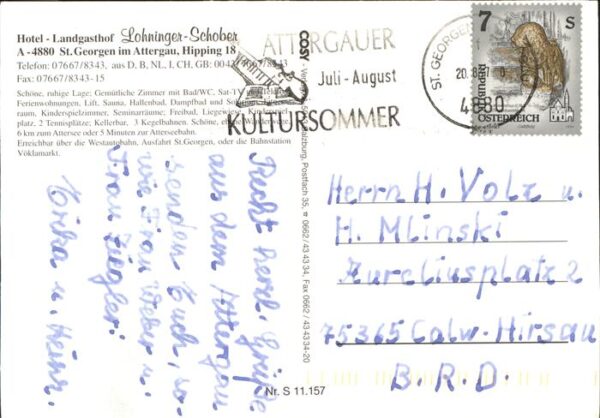 Hotel - Landgasthof Lohninger-Schober
A-4880 St. Georgen im Attergau, Hipping 18
Telefon: 07667/8343, aus D, B, NL, I, CH, GB: 0043/7667/8343
Fax: 07667/8343-15
Schöne, ruhige Lage: Gemütliche Zimmer mit Bad/WC, Sat-TV
Ferienwohnungen, Lift, Sauna, Hallenbad, Dampfbad und
raum, Kinderspielzimmer, Seminarräume; Freibad, Liegewiese, Kinderspiel-
platz, 2 Tennisplätze; Kellerbar, 3 Kegelbahnen. Schöne, ebene Wanderwege,
6 km zum Attersee oder 5 Minuten zur Atterseebahn.
Erreichbar über die Westautobahn, Ausfahrt St.Georgen, oder die Bahnstation
Vöklamarkt.
ATTERGAUER
Juli - August
KULTURSOMMER
ST. GEORGEN
4880
7 S
REPUBLIK
ÖSTERREICH
Recht herzl. Grüße
aus dem Attergau
senden Euch, so-
wie Frau Weber u.
Frau Ziegler:
Erika u. Heinr.
COSY
Salzburg, Postfach 35, ☎ 0662/43 43 34, Fax 0662/43 43 34-20
Nr. S 11.157
Herrn H. Volz u.
H. Mlinski
Aureliusplatz 2
75365 Calw-Hirsau
B.R.D.